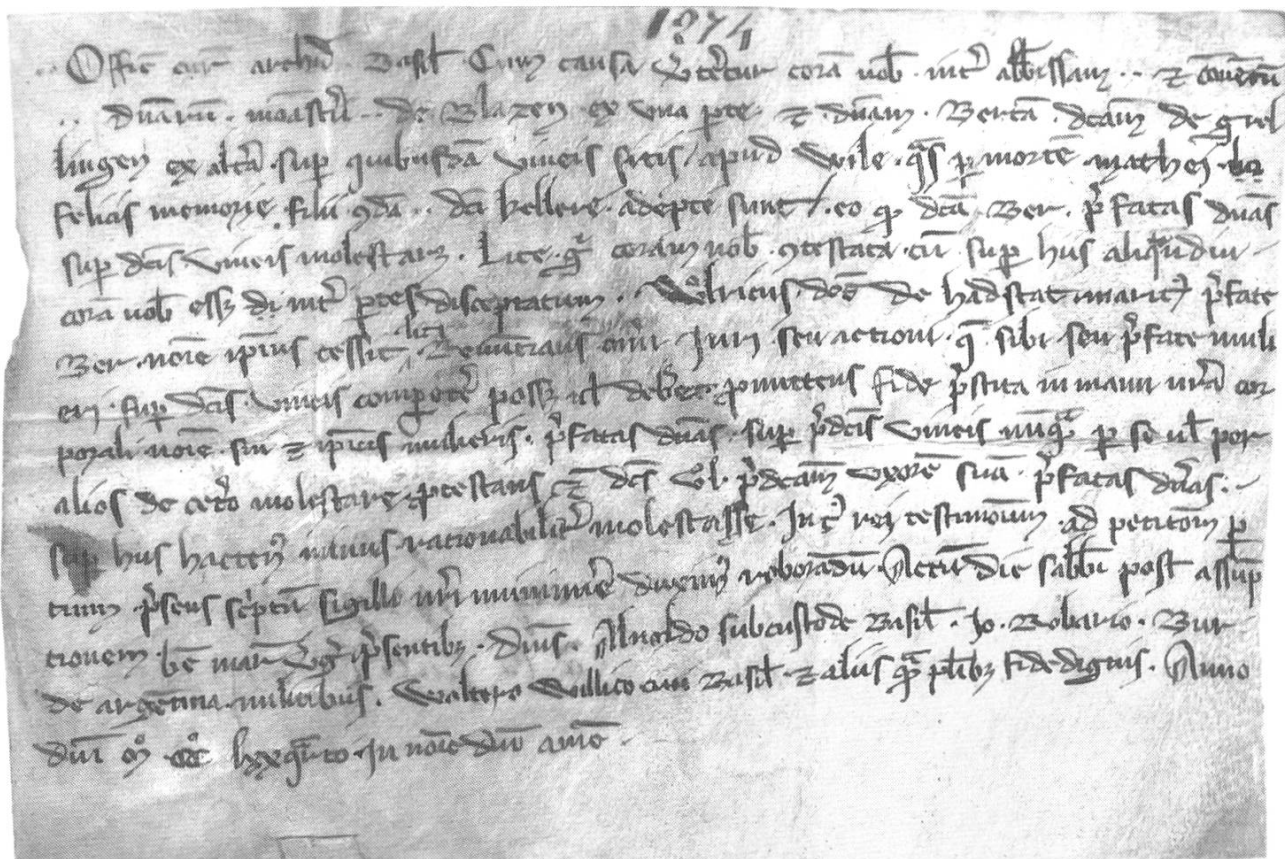 1274
.. Offic̄ cur̄ archid̄ . Basil̄ . Cum causa v̓teret᷑ corā nob̄ . int̓ abb̄issam . . ⁊ cōuentū
. . dn̄arū . mōast̓ii . . de Blazen ex vna p̱te . ⁊ . dn̄am . Bertā . dc̄am de Grel
lingen ex alt̓a . sup̱ quibusdā vineis sitis . apud wile . q̄s p̱ mortē . mathei .
felicis memorie . filii ꝯdā . . dc̄i kellere . adepte sunt / . eo qͦ dc̄a . Ber . p̓fatas dn̄as
sup̱ dc̄is vineis molestaret . Lite . gͥ coram nob̄ . ꝯtestata . cū sup̱ hiis aliqͣndiu .
corā nob̄ esset diu int̓ p̱tes disceptatum . Vͦlricus . dc̄s de hadstat marit᷒ p̓fate
Ber . noīe ip̄ius cessit liti . Renūtiaūs om̄i Iuri seu actioni . q̄ sibi seu p̓fate muli
eri . sup̱ dc̄is . vineis compet̓e posset ul̄ deb̓et . ꝓmittens fide p̓stita in manu nr̄a cor
porali noīe . sui ⁊ ip̄ius mulieris . p̓fatas dn̄as . sup̱ p̓dc̄is vineis nūqͣ p̱ se ul̄ per
alios de cet̓o molestare . ꝓtestans dc̄s Vl . p̓dc̄am vxorē suā . p̓fatas dn̄as . .
sup̱ hiis hacten᷒ minus . rationabilit̓ molestasse . In c᷒ rei testimonium . ad petitōm p̱
tium . p̓sens sc̓ptū sigilli nr̄i munimīe duxim᷒ roborādū . Actū die sabb̄i post assūp
tionem . bē mar̄ v̓g̓ . p̓sentib᷒ . dn̄is . Arnoldo subcustode Basil̄ . Io . Robario . Bur
de argētina . militibus . Waltero Willico ciui Basil̄ . ⁊ aliis qͣ pl̄ib᷒ fidedignis . Anno
dn̄i mͦ . ccͦ lxxqͣrto . In noīe dn̄i amē .